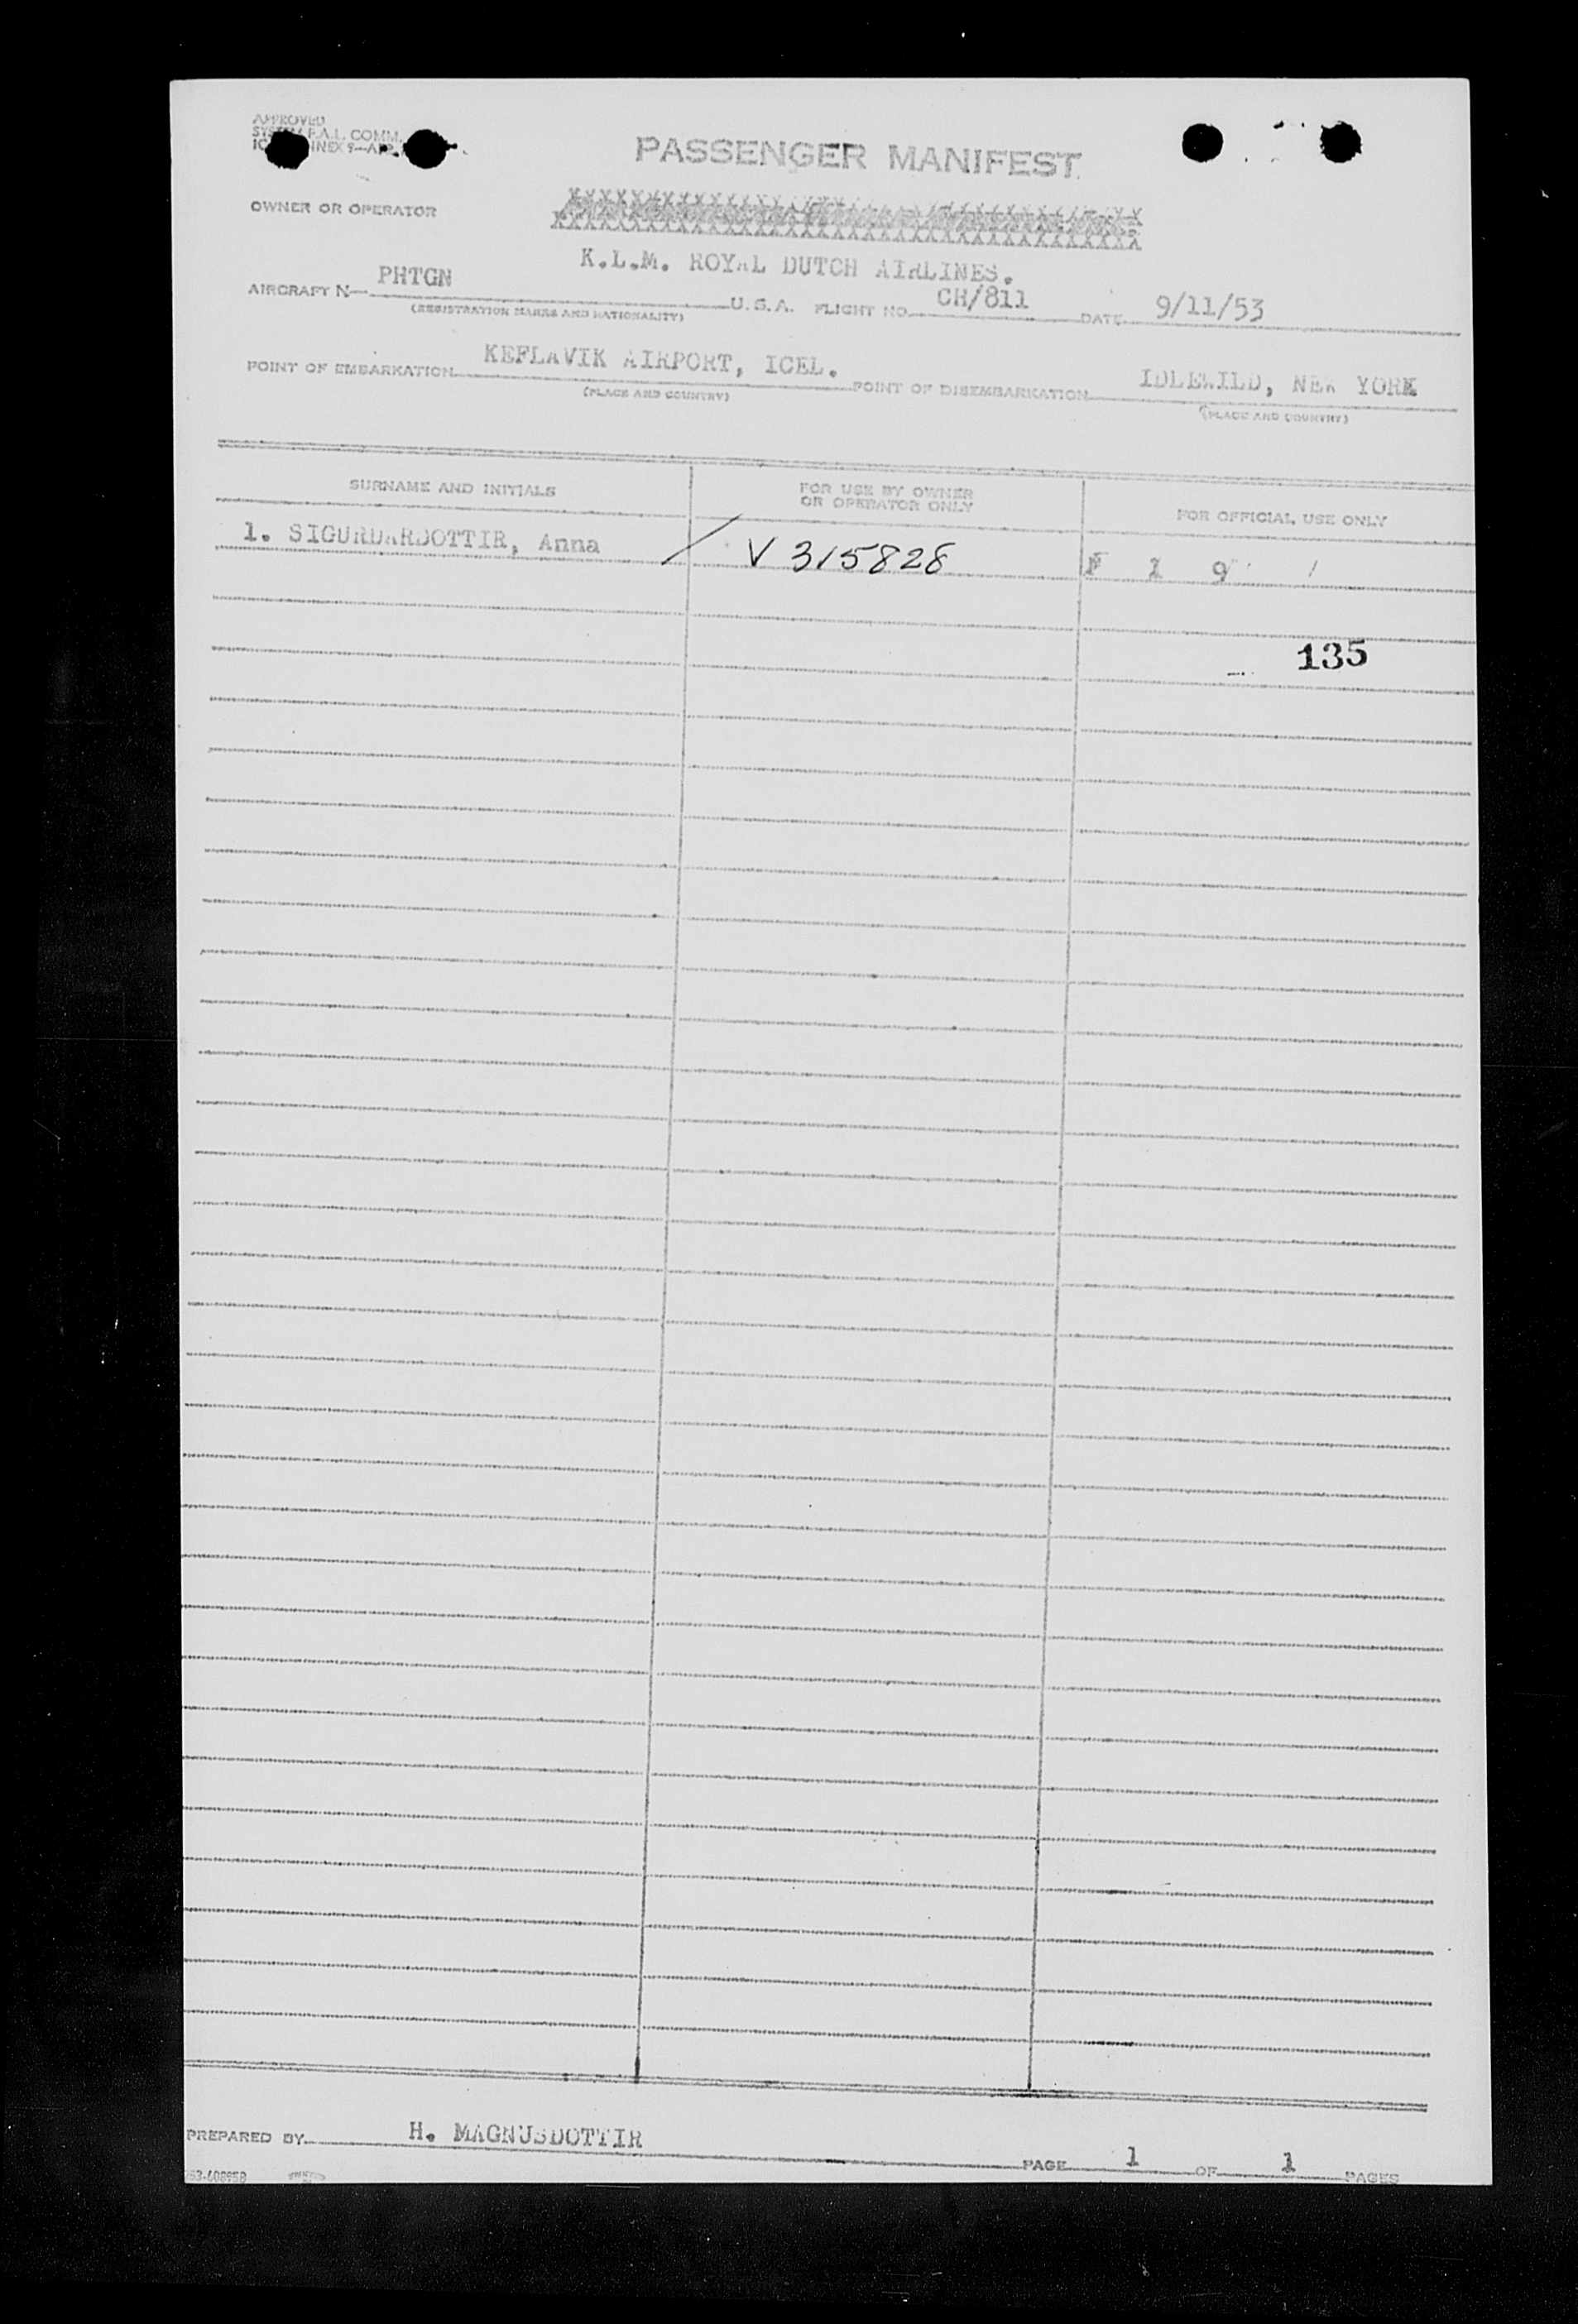 APPROVED
F.A.L. COMM.
PASSENGER MANIFEST
OWNER OR OPERATOR
K.L.M. ROYAL DUTCH AIRLINES.
AIRCRAFT N— PHTGN U.S.A. FLIGHT NO. CH/811 DATE 9/11/53
(REGISTRATION MARKS AND NATIONALITY)
POINT OF EMBARKATION KEFLAVIK AIRPORT, ICEL. POINT OF DISEMBARKATION IDLEWILD, NEW YORK
(PLACE AND COUNTRY) (PLACE AND COUNTRY)
SURNAME AND INITIALS FOR USE BY OWNER OR OPERATOR ONLY FOR OFFICIAL USE ONLY
1. SIGURDARDOTTIR, Anna / V 315828 F 1 9 /
135
PREPARED BY H. MAGNUSDOTTIR PAGE 1 OF 1 PAGES